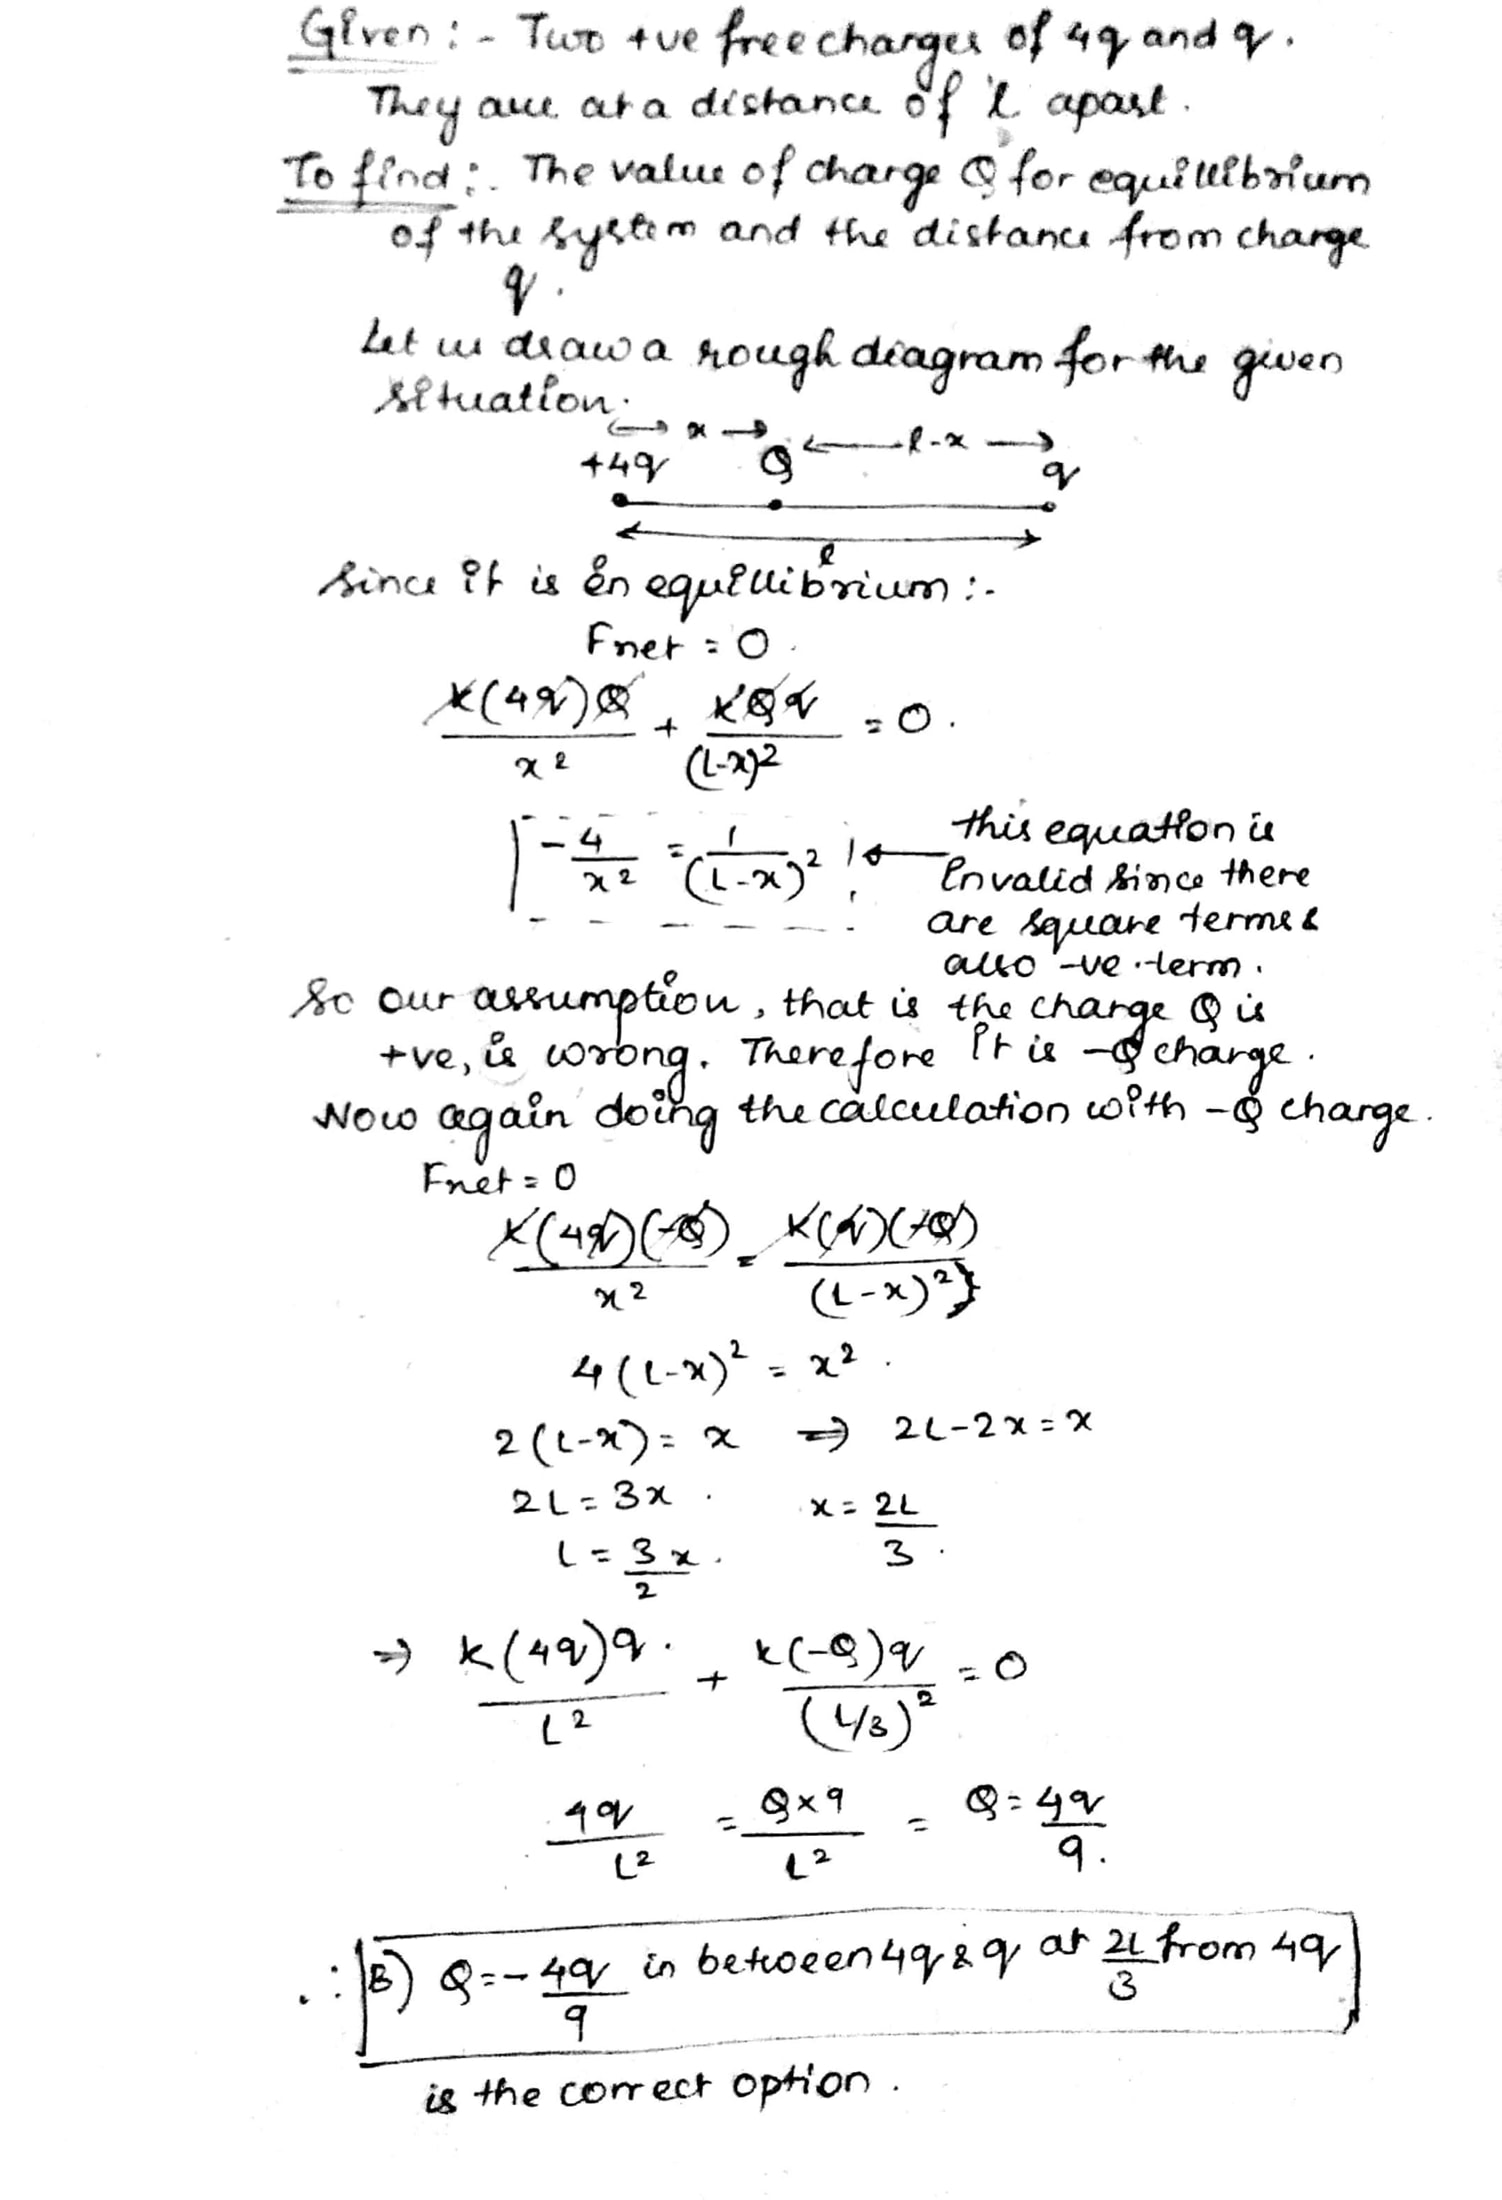 Given :- Two +ve free charges of 4q and q.
They are at a distance of 'l apart.
To find :. The value of charge Q for equillibrium
of the system and the distance from charge
q.
Let us draw a rough diagram for the given
situation.
x l-x
+4q Q q
l
Since it is in equillibrium :-
Fnet = 0.
K(4q)Q/x² + KQq/(L-x)² = 0.
-4/x² = 1/(L-x)² ← this equation is
invalid since there
are square terms &
also -ve term.
So our assumption, that is the charge Q is
+ve, is wrong. Therefore it is -Q charge.
Now again doing the calculation with -Q charge.
Fnet = 0
K(4q)(-Q)/x² = K(q)(-Q)/(L-x)²}
4(L-x)² = x².
2(L-x) = x ⇒ 2L-2x = x
2L = 3x . x = 2L/3.
L = 3x/2.
⇒ K(4q)q./L² + K(-Q)q/(L/3)² = 0
4q/L² = Q×9/L² = Q = 4q/9.
∴ B) Q = -4q/9 in between 4q & q at 2L/3 from 4q
is the correct option.